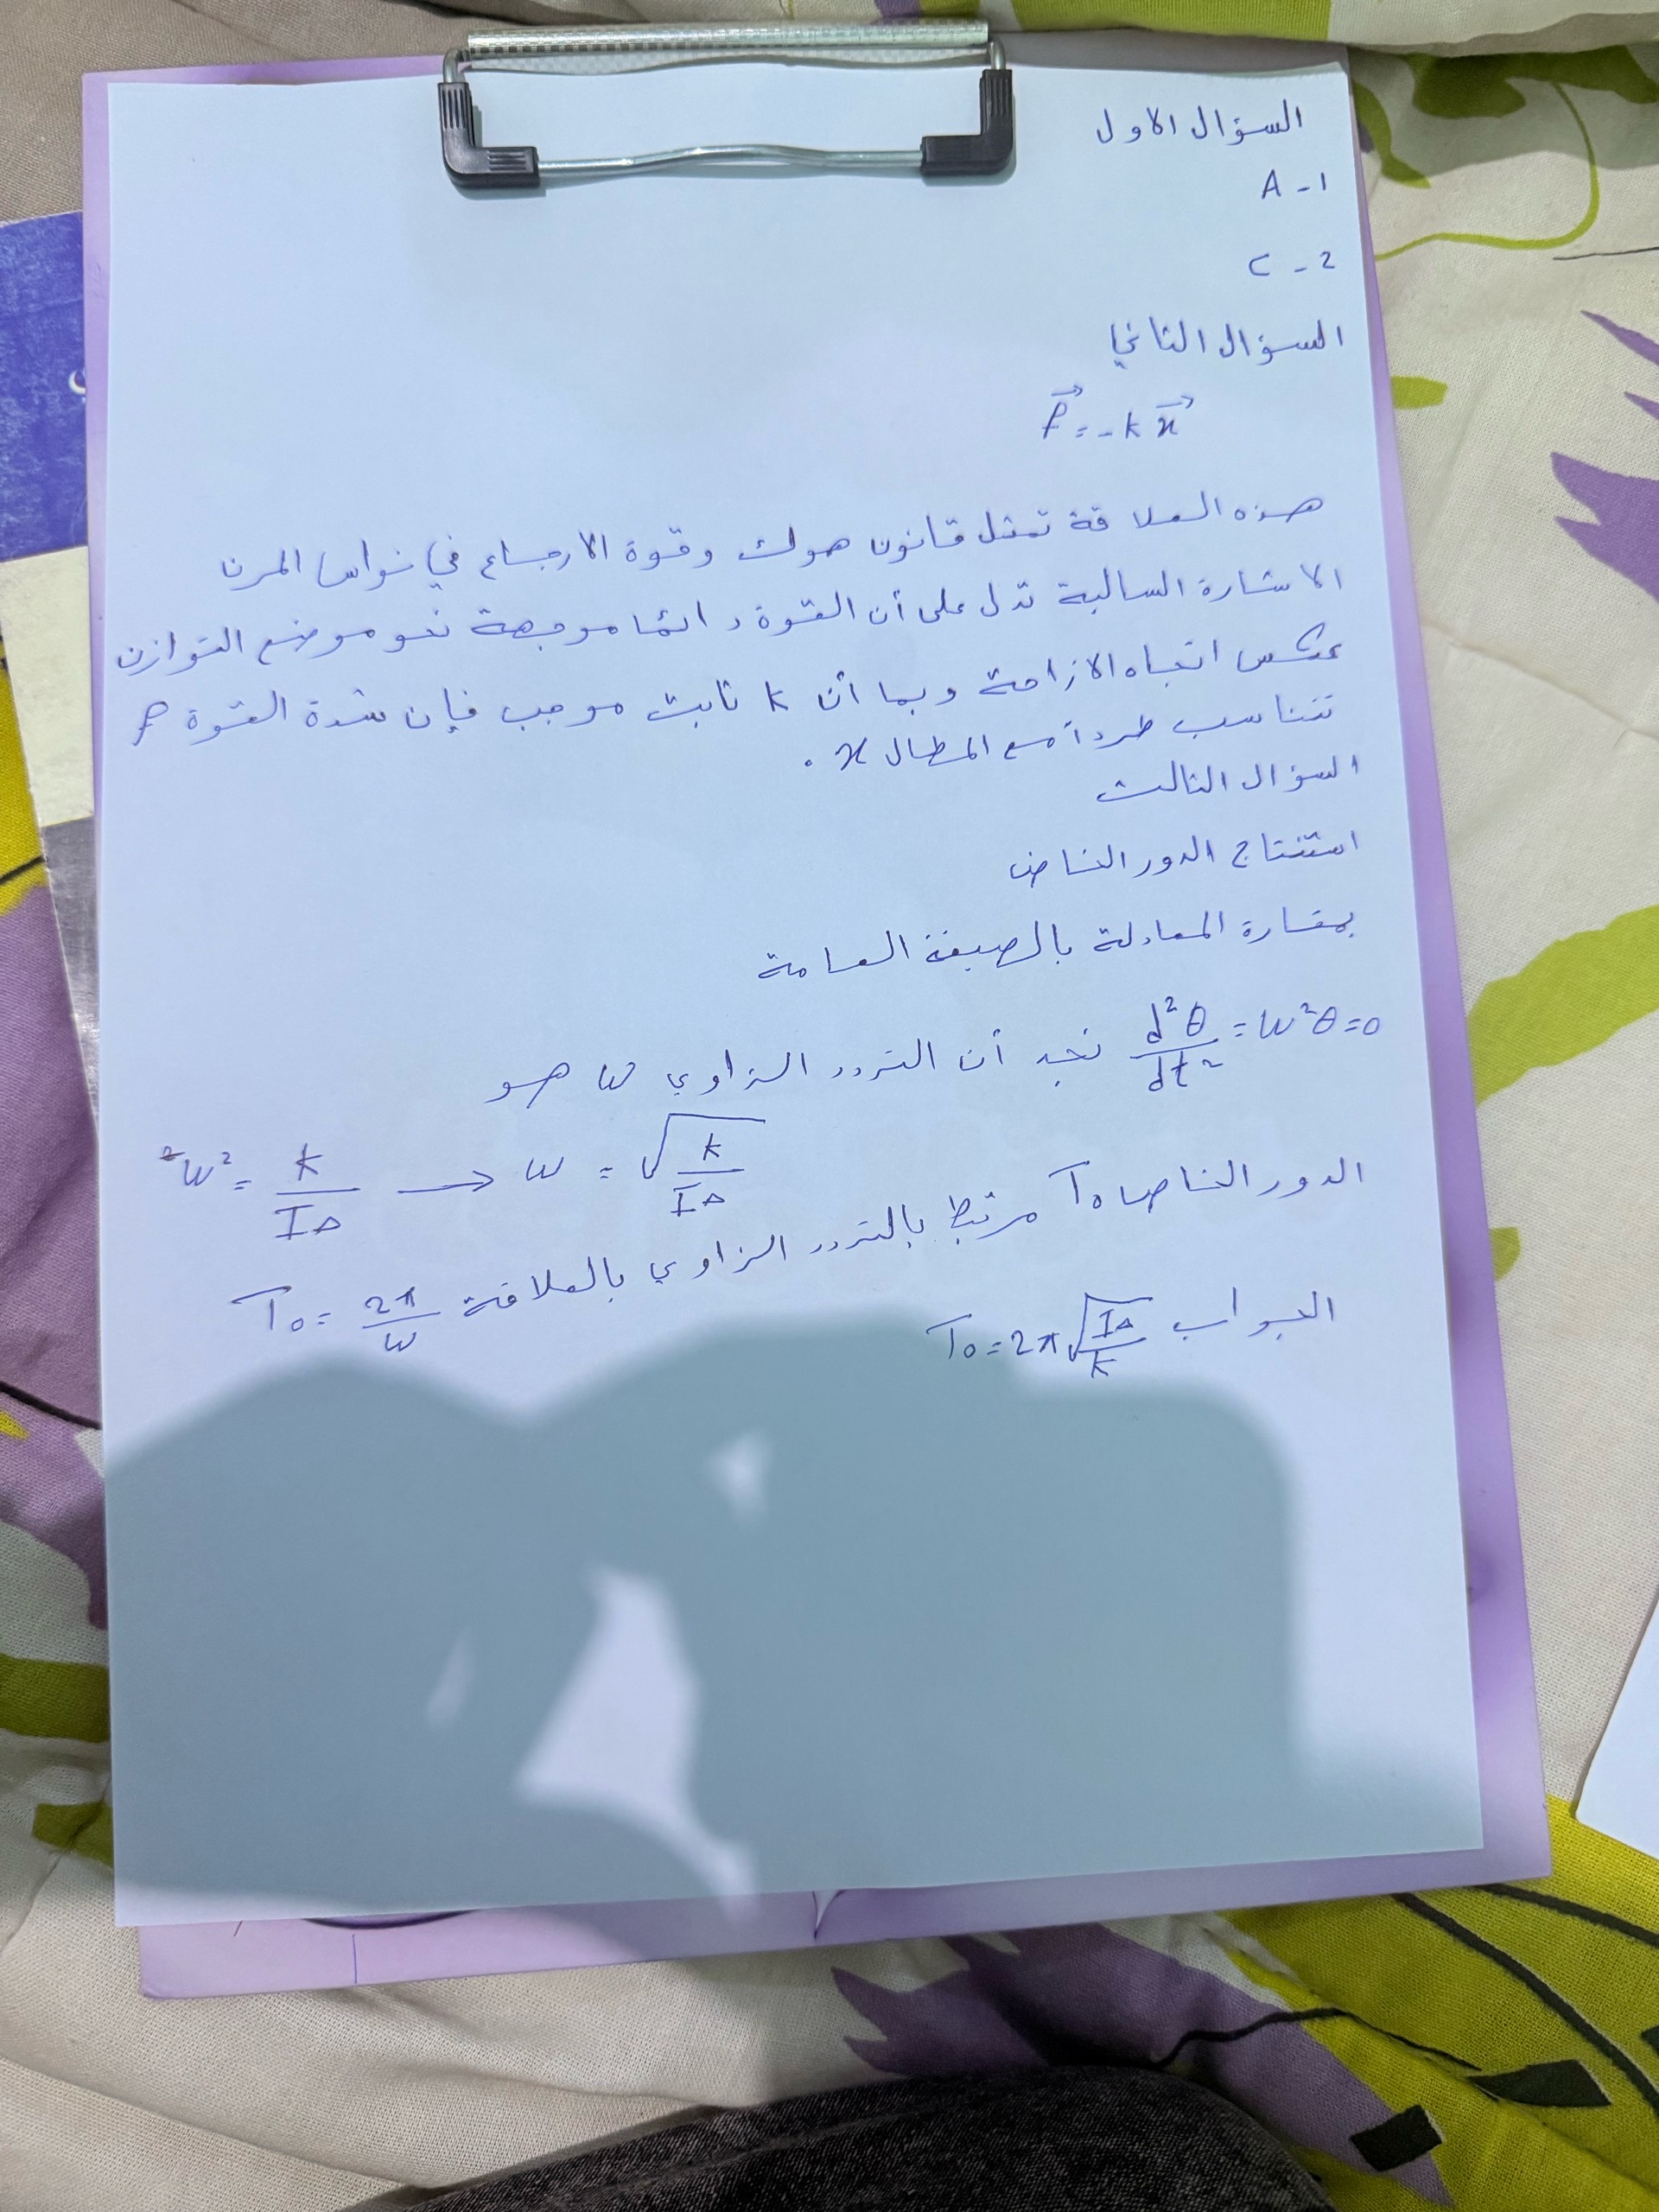 السؤال الاول
A - 1
C - 2
السؤال الثاني
F⃗ = - k x⃗
هذه العلاقة تمثل قانون هوك وقوة الارجاع في نواس المرن
الاشارة السالبة تدل على أن القوة دائما موجهة نحو موضع التوازن
عكس اتجاه الازاحة وبما أن k ثابت موجب فإن شدة القوة F
تتناسب طرداً مع المطال x .
السؤال الثالث
استنتاج الدور الخاص
بمقارة المعادلة بالصيغة العامة
d²θ/dt² = ω²θ = 0 نجد أن التردد الزاوي ω هو
ω² = k/I∆ → ω = √(k/I∆)
الدور الخاص T₀ مرتبط بالتردد الزاوي بالعلاقة T₀ = 2π/ω
الجواب T₀ = 2π√(I∆/k)